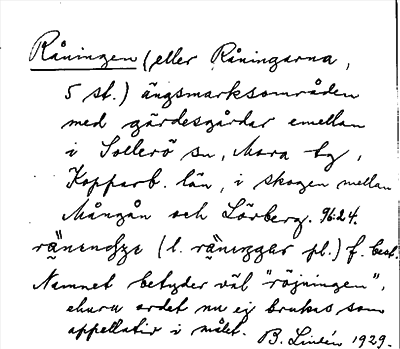 Råningen (eller Råningarna,
5 st.) ängsmarksområden
med gärdesgårdar emellan
i Sollerö sn, Mora tg,
Kopparb. län, i skogen mellan
Mångån och Lörberg. 9/6 24.
(l. pl.) f. best.
Namnet betyder väl "röjningen",
ehuru ordet nu ej brukas som
appellativ i målet. B. Lindén 1929.